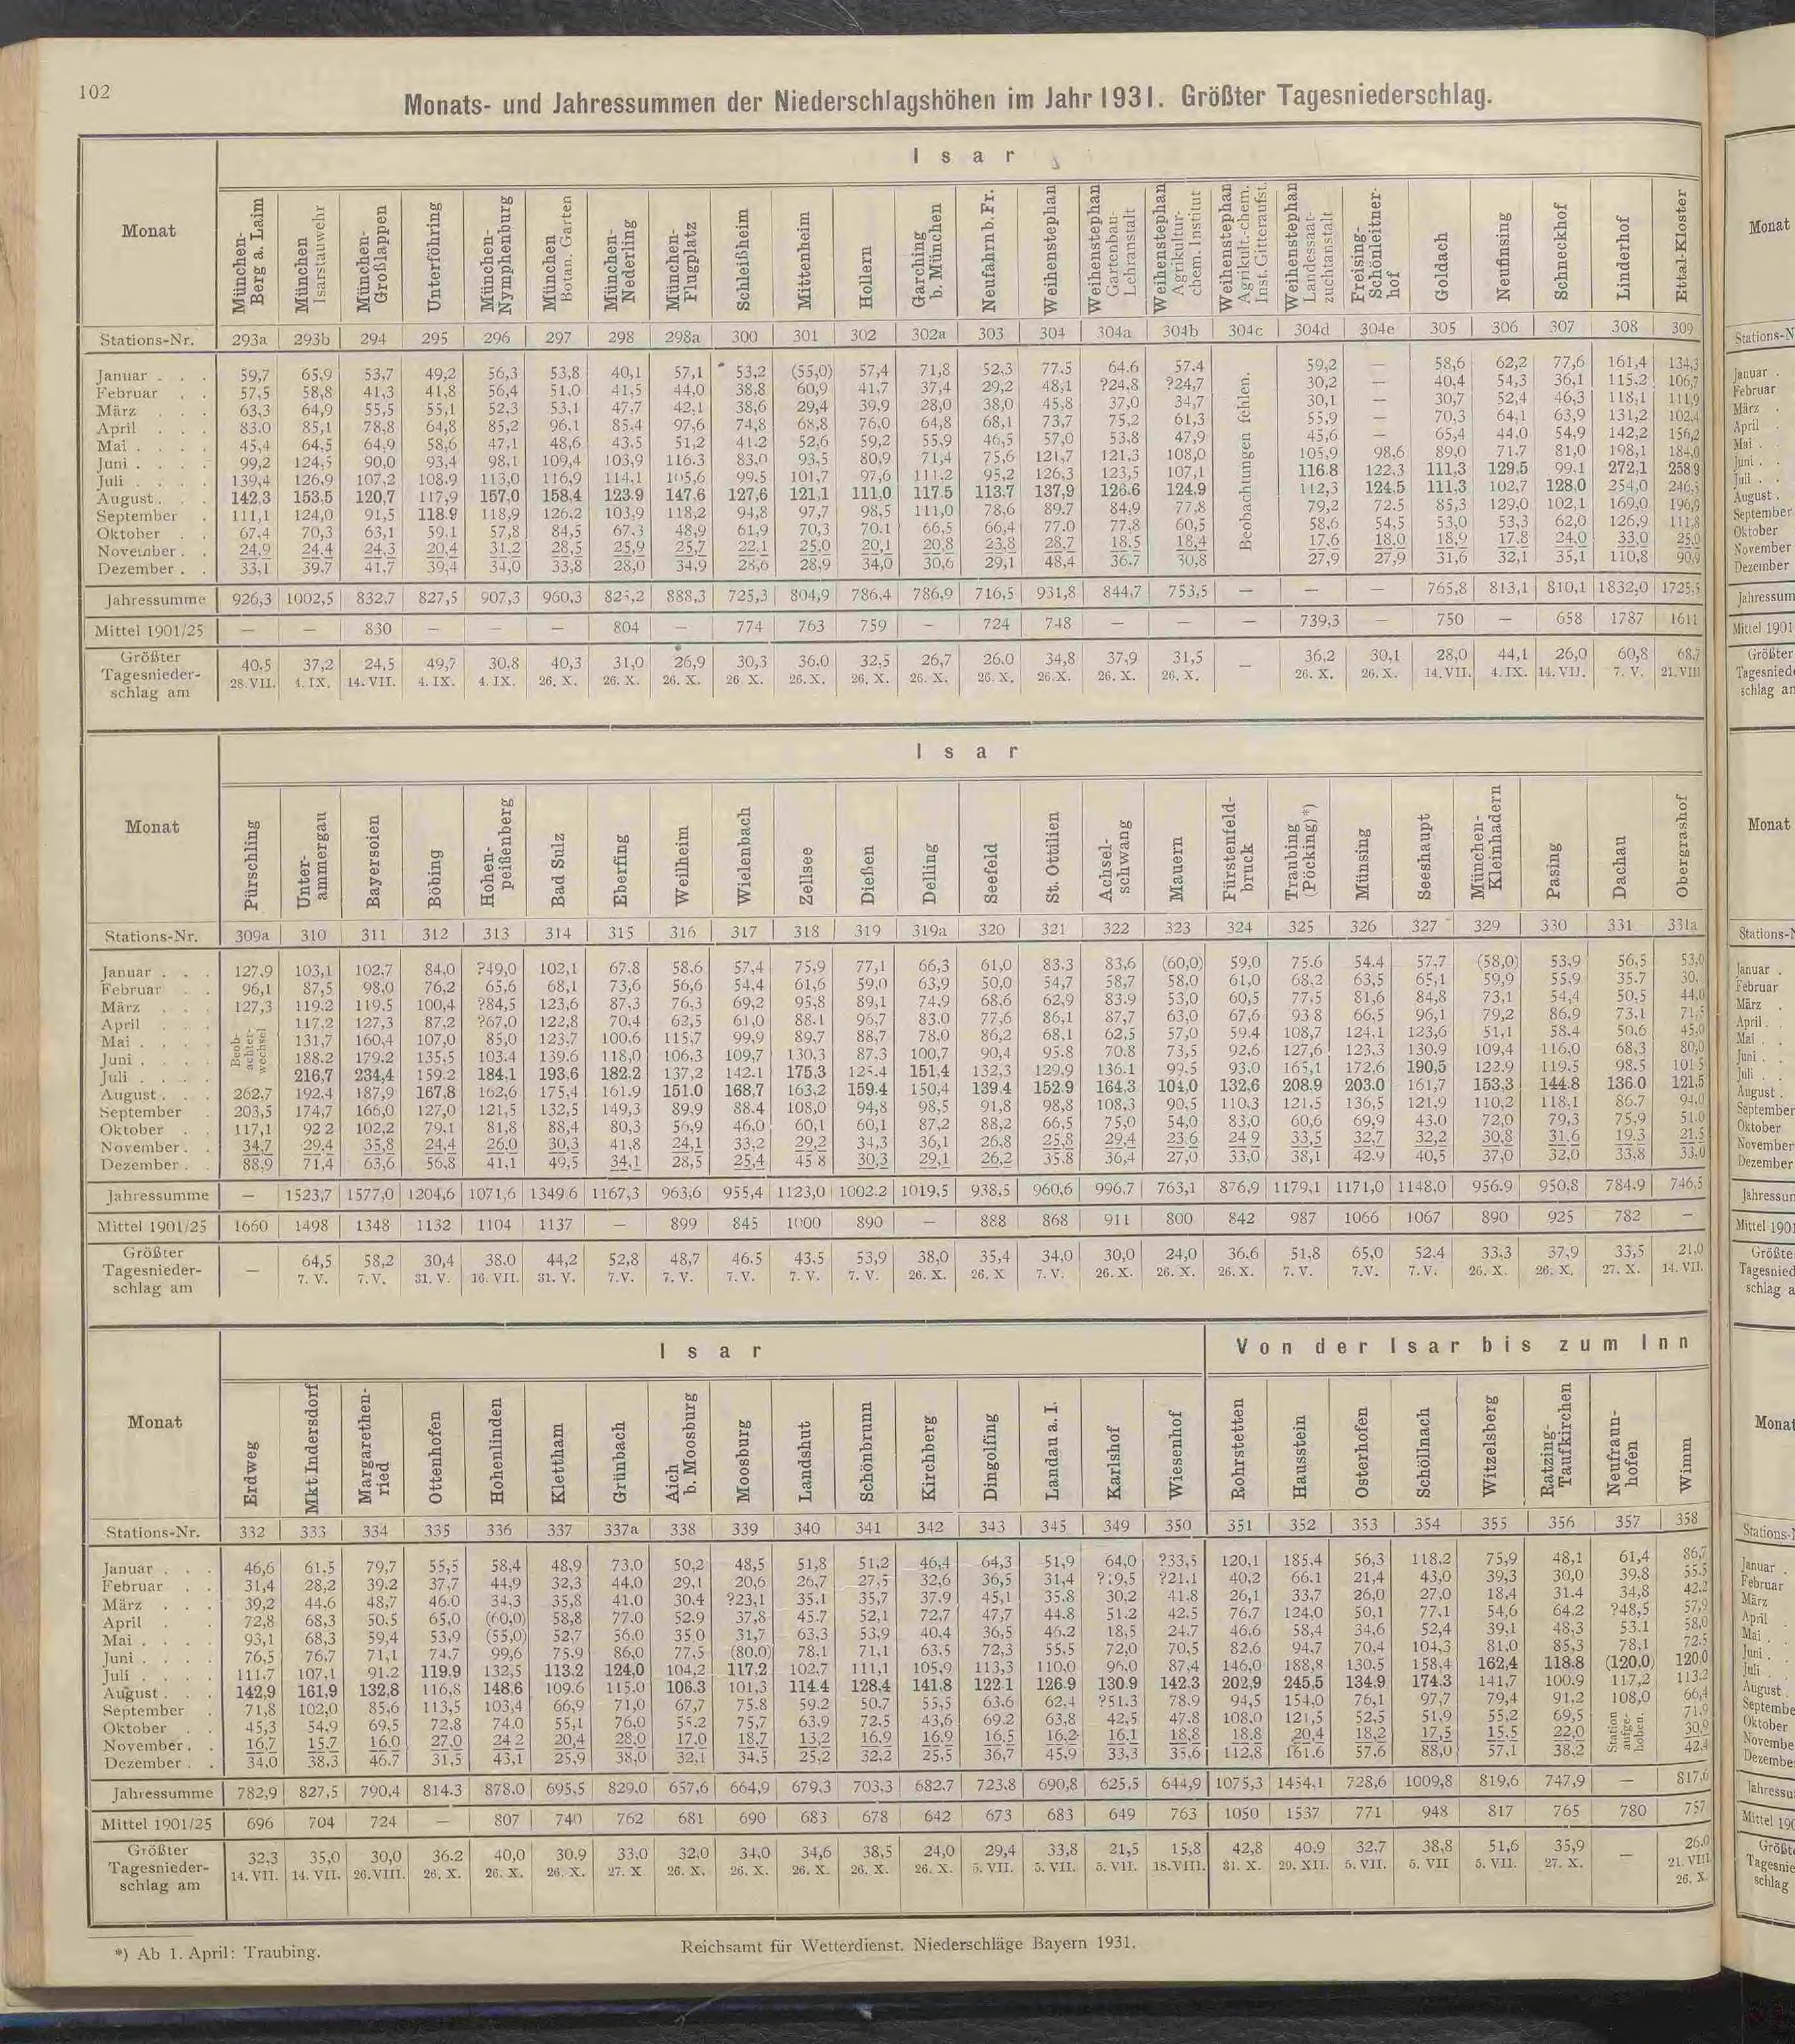 102
Monats- und Jahressummen der Niederschlagshöhen im Jahr 1931. Größter Tagesniederschlag.
Isar
Monat
München-Berg a. Laim
München Isarstauwehr
München-Großlappen
Unterföhring
München-Nymphenburg
München Botan. Garten
München-Nederling
München-Flugplatz
Schleißheim
Mittenheim
Hollern
Garching b. München
Neufahrn b. Fr.
Weihenstephan
Weihenstephan Gartenbau-Lehranstalt
Weihenstephan Agrikultur-chem. Institut
Weihenstephan Agrikult.-chem. Inst. Gitteraufst.
Weihenstephan Landessaat-zuchtanstalt
Freising-Schönleitner-hof
Goldach
Neufinsing
Schneckhof
Linderhof
Ettal-Kloster
Stations-Nr. 293a 293b 294 295 296 297 298 298a 300 301 302 302a 303 304 304a 304b 304c 304d 304e 305 306 307 308 309
Januar . . . 59,7 65,9 53,7 49,2 56,3 53,8 40,1 57,1 53,2 (55,0) 57,4 71,8 52,3 77,5 64,6 57,4 59,2 — 58,6 62,2 77,6 161,4 134,3
Februar . . 57,5 58,8 41,3 41,8 56,4 51,0 41,5 44,0 38,8 60,9 41,7 37,4 29,2 48,1 ?24,8 ?24,7 30,2 — 40,4 54,3 36,1 115,2 106,7
März . . . 63,3 64,9 55,5 55,1 52,3 53,1 47,7 42,1 38,6 29,4 39,9 28,0 38,0 45,8 37,0 34,7 30,1 — 30,7 52,4 46,3 118,1 111,9
April . . . 83,0 85,1 78,8 64,8 85,2 96,1 85,4 97,6 74,8 68,8 76,0 64,8 68,1 73,7 75,2 61,3 55,9 — 70,3 64,1 63,9 131,2 102,4
Mai . . . . 45,4 64,5 64,9 58,6 47,1 48,6 43,5 51,2 41,2 52,6 59,2 55,9 46,5 57,0 53,8 47,9 45,6 — 65,4 44,0 54,9 142,2 156,2
Juni . . . . 99,2 124,5 90,0 93,4 98,1 109,4 103,9 116,3 83,0 93,5 80,9 71,4 75,6 121,7 121,3 108,0 105,9 98,6 89,0 71,7 81,0 198,1 184,0
Juli . . . . 139,4 126,9 107,2 108,9 113,0 116,9 114,1 105,6 99,5 101,7 97,6 111,2 95,2 126,3 123,5 107,1 116,8 122,3 111,3 129,5 99,1 272,1 258,9
August . . . 142,3 153,5 120,7 117,9 157,0 158,4 123,9 147,6 127,6 121,1 111,0 117,5 113,7 137,9 126,6 124,9 112,3 124,5 111,3 102,7 128,0 254,0 246,5
September . 111,1 124,0 91,5 118,9 118,9 126,2 103,9 118,2 94,8 97,7 98,5 111,0 78,6 89,7 84,9 77,8 79,2 72,5 85,3 129,0 102,1 169,0 196,9
Oktober . . 67,4 70,3 63,1 59,1 57,8 84,5 67,3 48,9 61,9 70,3 70,1 66,5 66,4 77,0 77,8 60,5 58,6 54,5 53,0 53,3 62,0 126,9 111,8
November . . 24,9 24,4 24,3 20,4 31,2 28,5 25,9 25,7 22,1 25,0 20,1 20,8 23,8 28,7 18,5 18,4 17,6 18,0 18,9 17,8 24,0 33,0 25,0
Dezember . . 33,1 39,7 41,7 39,4 34,0 33,8 28,0 34,9 28,6 28,9 34,0 30,6 29,1 48,4 36,7 30,8 27,9 27,9 31,6 32,1 35,1 110,8 90,9
Beobachtungen fehlen.
Jahressumme 926,3 1002,5 832,7 827,5 907,3 960,3 888,3 725,3 804,9 786,4 786,9 716,5 931,8 844,7 753,5 — — — 765,8 813,1 810,1 1832,0 1725,5
Mittel 1901/25 — — 830 — — — 804 — 774 763 759 — 724 748 — — — 739,3 — 750 — 658 1787 1611
Größter 40,5 37,2 24,5 49,7 30,8 40,3 31,0 26,9 30,3 36,0 32,5 26,7 26,0 34,8 37,9 31,5 — 36,2 30,1 28,0 44,1 26,0 60,8 68,7
Tagesnieder- 28.VII. 4. IX. 14. VII. 4. IX. 4. IX. 26. X. 26. X. 26. X. 26 X. 26. X. 26. X. 26. X. 26. X. 26. X. 26. X. 26. X. 26. X. 26. X. 14. VII. 4. IX. 14. VII. 7. V. 21. VIII
schlag am
Isar
Monat
Pürschling
Unter-ammergau
Bayersoien
Böbing
Hohen-peißenberg
Bad Sulz
Eberfing
Weilheim
Wielenbach
Zellsee
Dießen
Delling
Seefeld
St. Ottilien
Achsel-schwang
Mauern
Fürstenfeld-bruck
Traubing (Pöcking)*)
Münsing
Seeshaupt
München-Kleinhadern
Pasing
Dachau
Obergrashof
Stations-Nr. 309a 310 311 312 313 314 315 316 317 318 319 319a 320 321 322 323 324 325 326 327 329 330 331 331a
Januar . . . 127,9 103,1 102,7 84,0 ?49,0 102,1 67,8 58,6 57,4 75,9 77,1 66,3 61,0 83,3 83,6 (60,0) 59,0 75,6 54,4 57,7 (58,0) 53,9 56,5 53,0
Februar . . 96,1 87,5 98,0 76,2 65,6 68,1 73,6 56,6 54,4 61,6 59,0 63,9 50,0 54,7 58,7 58,0 61,0 68,2 63,5 65,1 59,9 55,9 35,7 30,
März . . . 127,3 119,2 119,5 100,4 ?84,5 123,6 87,3 76,3 69,2 95,8 89,1 74,9 68,6 62,9 83,9 53,0 60,5 77,5 81,6 84,8 73,1 54,4 50,5 44,0
April . . . 117,2 127,3 87,2 ?67,0 122,8 70,4 62,5 61,0 88,1 96,7 83,0 77,6 86,1 87,7 63,0 67,6 93 8 66,5 96,1 79,2 86,9 73,1 71,5
Mai . . . . 131,7 160,4 107,0 85,0 123,7 100,6 115,7 99,9 89,7 88,7 78,0 86,2 68,1 62,5 57,0 59,4 108,7 124,1 123,6 51,1 58,4 50,6 45,0
Juni . . . . 188,2 179,2 135,5 103,4 139,6 118,0 106,3 109,7 130,3 87,3 100,7 90,4 95,8 70,8 73,5 92,6 127,6 123,3 130,9 109,4 116,0 68,3 80,0
Juli . . . . 216,7 234,4 159,2 184,1 193,6 182,2 137,2 142,1 175,3 151,4 132,3 129,9 136,1 99,5 93,0 165,1 172,6 190,5 122,9 119,5 98,5 101 5
August . . . 262,7 192,4 187,9 167,8 162,6 175,4 161,9 151,0 168,7 163,2 159,4 150,4 139,4 152,9 164,3 104,0 132,6 208,9 203,0 161,7 153,3 144,8 136,0 121,5
September . 203,5 174,7 166,0 127,0 121,5 132,5 149,3 89,9 88,4 108,0 94,8 98,5 91,8 98,8 108,3 90,5 110,3 121,5 136,5 121,9 110,2 118,1 86,7 94,0
Oktober . . 117,1 92 2 102,2 79,1 81,8 88,4 80,3 56,9 46,0 60,1 60,1 87,2 88,2 66,5 75,0 54,0 83,0 60,6 69,9 43,0 72,0 79,3 75,9 51,0
November . . 34,7 29,4 35,8 24,4 26,0 30,3 41,8 24,1 33,2 29,2 34,3 36,1 26,8 25,8 29,4 23 6 24 9 33,5 32,7 32,2 30,8 31,6 19,3 21,5
Dezember . . 88,9 71,4 63,6 56,8 41,1 49,5 34,1 28,5 25,4 45 8 30,3 29,1 26,2 35,8 36,4 27,0 33,0 38,1 42,9 40,5 37,0 32,0 33,8 33,0
Beob-achter-wechsel
Jahressumme — 1523,7 1577,0 1204,6 1071,6 1349,6 1167,3 963,6 955,4 1123,0 1002,2 1019,5 938,5 960,6 996,7 763,1 876,9 1179,1 1171,0 1148,0 956,9 950,8 784,9 746,5
Mittel 1901/25 1660 1498 1348 1132 1104 1137 — 899 845 1000 890 — 888 868 911 800 842 987 1066 1067 890 925 782 —
Größter — 64,5 58,2 30,4 38,0 44,2 52,8 48,7 46,5 43,5 53,9 38,0 35,4 34,0 30,0 24,0 36,6 51,8 65,0 52,4 33,3 37,9 33,5 21,0
Tagesnieder- 7. V. 7. V. 31. V. 16. VII. 31. V. 7. V. 7. V. 7. V. 7. V. 7. V. 26. X. 26. X 7. V. 26. X. 26. X. 26. X. 7. V. 7. V. 7. V. 26. X. 26. X. 27. X. 14. VII.
schlag am
Isar
Von der Isar bis zum Inn
Monat
Erdweg
Mkt Indersdorf
Margarethen-ried
Ottenhofen
Hohenlinden
Klettham
Grünbach
Aich b. Moosburg
Moosburg
Landshut
Schönbrunn
Kirchberg
Dingolfing
Landau a. I.
Karlshof
Wiesenhof
Rohrstetten
Hausstein
Osterhofen
Schöllnach
Witzelsberg
Ratzing-Taufkirchen
Neufraun-hofen
Wimm
Stations-Nr. 332 333 334 335 336 337 337a 338 339 340 341 342 343 345 349 350 351 352 353 354 355 356 357 358
Januar . . . 46,6 61,5 79,7 55,5 58,4 48,9 73,0 50,2 48,5 51,8 51,2 46,4 64,3 51,9 64,0 ?33,5 120,1 185,4 56,3 118,2 75,9 48,1 61,4 86,7
Februar . . 31,4 28,2 39,2 37,7 44,9 32,3 44,0 29,1 20,6 26,7 27,5 32,6 36,5 31,4 ?21,1 40,2 66,1 21,4 43,0 39,3 30,0 39,8 55,5
März . . . 39,2 44,6 48,7 46,0 34,3 35,8 41,0 30,4 ?23,1 35,1 35,7 37,9 45,1 35,8 30,2 41,8 26,1 33,7 26,0 27,0 18,4 31,4 34,8 42,2
April . . 72,8 68,3 50,5 65,0 (60,0) 58,8 77,0 52,9 37,8 45,7 52,1 72,7 47,7 44,8 51,2 42,5 76,7 124,0 50,1 77,1 54,6 64,2 ?48,5 57,9
Mai . . . . 93,1 68,3 59,4 53,9 (55,0) 52,7 56,0 35,0 31,7 63,3 53,9 40,4 36,5 46,2 18,5 24,7 46,6 58,4 34,6 52,4 39,1 48,3 53,1 58,0
Juni . . . . 76,5 76,7 71,1 74,7 99,6 75,9 86,0 77,5 (80,0) 78,1 71,1 63,5 72,3 55,5 72,0 70,5 82,6 94,7 70,4 104,3 81,0 85,3 78,1 72,5
Juli . . . . 111,7 107,1 91,2 119,9 132,5 113,2 124,0 104,2 117,2 102,7 111,1 105,9 113,3 110,0 96,0 87,4 146,0 188,8 130,5 158,4 162,4 118,8 (120,0) 120,0
August . . . 142,9 161,9 132,8 116,8 148,6 109,6 115,0 106,3 101,3 114,4 128,4 141,8 122,1 126,9 130,9 142,3 202,9 245,5 134,9 174,3 141,7 100,9 117,2 113,2
September . 71,8 102,0 85,6 113,5 103,4 66,9 71,0 67,7 75,8 59,2 50,7 55,5 63,6 62,4 ?51,3 78,9 94,5 154,0 76,1 97,7 79,4 91,2 108,0 66,4
Oktober . . 45,3 54,9 69,5 72,8 74,0 55,1 76,0 55,2 75,7 63,9 72,5 43,6 69,2 63,8 42,5 47,8 108,0 121,5 52,5 51,9 55,2 69,5 71,9
November . . 16,7 15,7 16,0 27,0 24 2 20,4 28,0 17,0 18,7 13,2 16,9 16,9 16,5 16,2 16,1 18,8 18,8 20,4 18,2 17,5 15,5 22,0 30,9
Dezember . . 34,0 38,3 46,7 31,5 43,1 25,9 38,0 32,1 34,5 25,2 32,2 25,5 36,7 45,9 33,3 35,6 112,8 161,6 57,6 88,0 57,1 38,2 42,4
Station aufge-hoben.
Jahressumme 782,9 827,5 790,4 814,3 878,0 695,5 829,0 657,6 664,9 679,3 703,3 682,7 723,8 690,8 625,5 644,9 1075,3 1454,1 728,6 1009,8 819,6 747,9 — 817,6
Mittel 1901/25 696 704 724 — 807 740 762 681 690 683 678 642 673 683 649 763 1050 1537 771 948 817 765 780 757
Größter 32,3 35,0 30,0 36,2 40,0 30,9 33,0 32,0 34,0 34,6 38,5 24,0 29,4 33,8 21,5 15,8 42,8 40,9 32,7 38,8 51,6 35,9 — 26,0
Tagesnieder- 14. VII. 14. VII. 26. VIII. 26. X. 26. X. 26. X. 27. X 26. X. 26. X. 26. X. 26. X. 26. X. 5. VII. 5. VII. 5. VII. 18. VIII. 31. X. 29. XII. 5. VII. 5. VII 5. VII. 27. X. 21. VIII.
schlag am 26. X.
*) Ab 1. April: Traubing.
Reichsamt für Wetterdienst. Niederschläge Bayern 1931.
Monat
Stations-N
Januar .
Februar
März
April
Mai .
Juni . .
Juli . .
August .
September
Oktober
November
Dezember
Jahressum
Mittel 1901
Größter
Tagesniede
schlag an
Monat
Stations-N
Januar .
Februar
März
April . .
Mai . .
Juni . .
Juli . .
August .
September
Oktober
November
Dezember
Jahressum
Mittel 1901
Größte
Tagesnied
schlag a
Monat
Stations-
Januar .
Februar
März
April
Mai . .
Juni . .
Juli . .
August .
Septembe
Oktober
Novembe
Dezembe
Jahressu
Mittel 190
Größt
Tagesnie
schlag